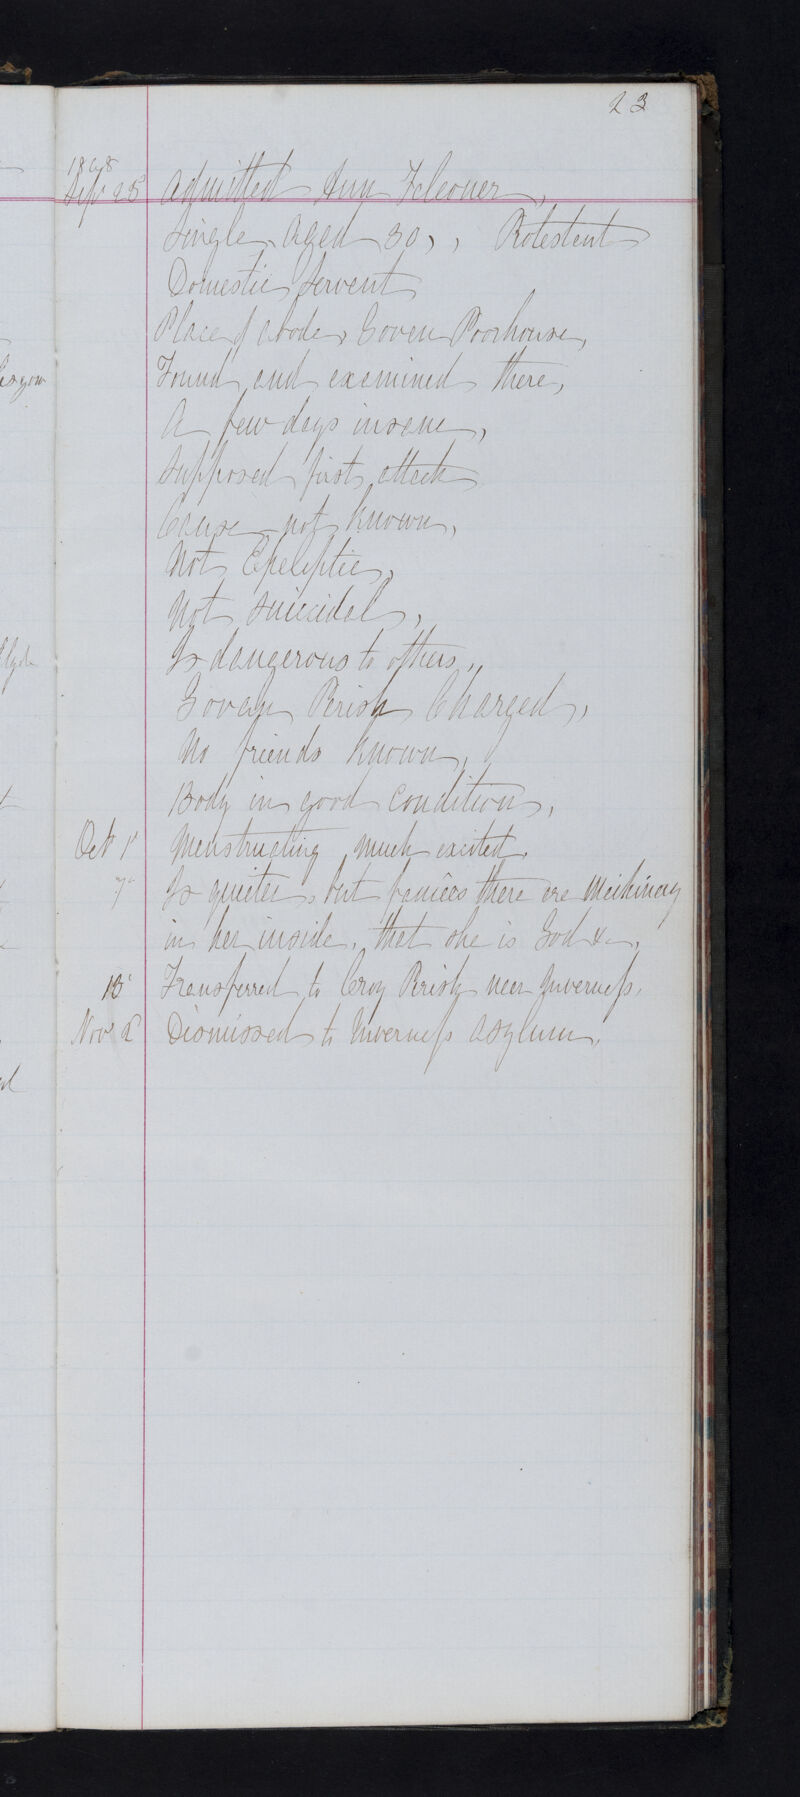 23
1868
Sept 25 Admitted Ann Falconer,
Single, aged 30,, Protestant
Domestic Servant
Place of abode, Govan Poorhouse,
Found and examined there,
A few days insane,
Supposed first attack
Cause not known,
Not Epeleptic,
Not suicidal,
Is dangerous to others,
Govan Parish Charged,
No friends known,
Body in good condition,
Oct 1 Menstruating much excited.
7 Is quieter, but fancies there are machinery
in her inside, that she is God &c,
Transferred to Croy Parish near Inverness,
Nov 2 Dismissed to Inverness Asylum.